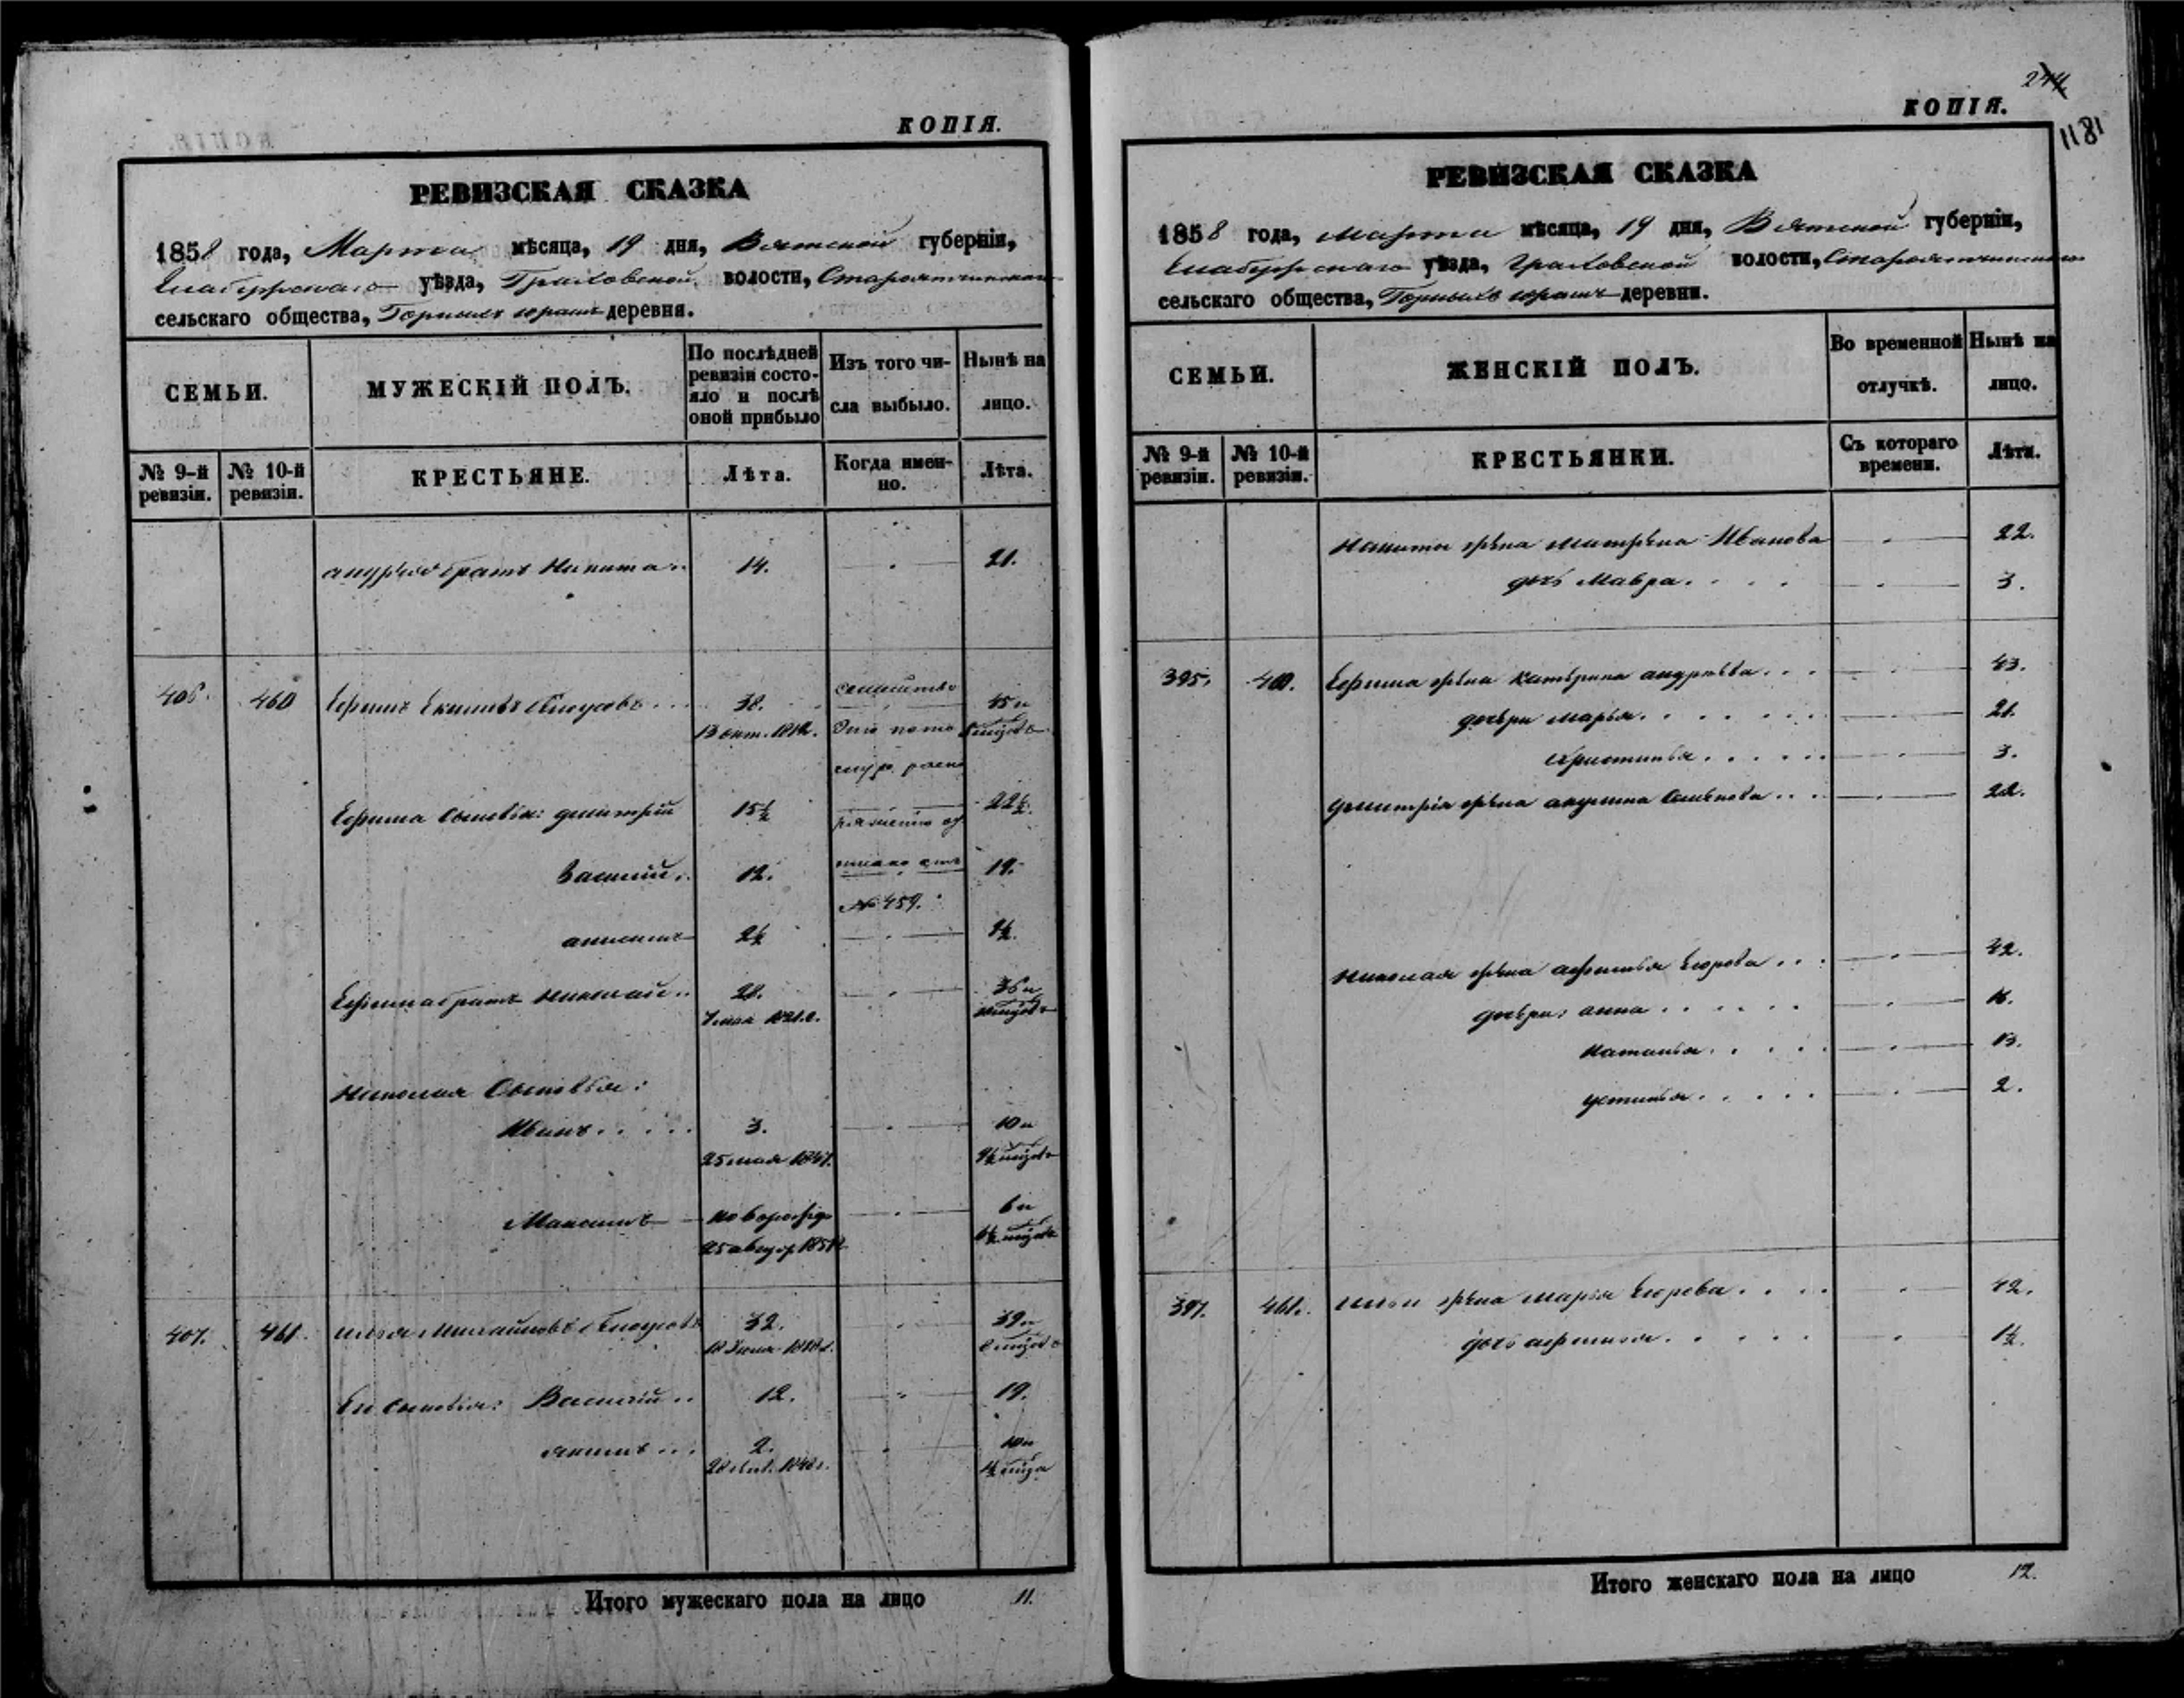 КОПІЯ.
РЕВИЗСКАЯ СКАЗКА
1858 года, Марта мѣсяца, 19 дня, Вятской губерніи,
Елабужскаго уѣзда, Граховской волости,
сельскаго общества, Горныхъ юрашъ деревня.
СЕМЬИ.
МУЖЕСКІЙ ПОЛЪ.
По послѣдней ревизіи состояло и послѣ оной прибыло
Изъ того числа выбыло.
Нынѣ на лицо.
№ 9-й ревизіи.
№ 10-й ревизіи.
КРЕСТЬЯНЕ.
Лѣта.
Когда именно.
Лѣта.
андрея братъ Никита 14. 21.
406. 460 Ефимъ Екимовъ 38. семейство 45 и
13 окт. 1812. Этo по по
Ефима сыновья: дмитрій 15½ 22½.
Василій 12. 19.
№ 459.
2½ 9½.
Ефима братъ Николай 28. 36 и
7 мая 1821 г.
Николая Сыновья:
Иванъ 3. 10 и
25 мая 1847. 9½
Максимъ новорожд 6 и
25 август 1851 6½
407. 461. илья Михайловъ 32. 39 и
18 Іюля 1818 г. 8
Ево сыновья: Василій 12. 19.
якимъ 2. 10 и
1848 г.
Итого мужескаго пола на лицо 11.
244
КОПІЯ.
1181
РЕВИЗСКАЯ СКАЗКА
1858 года, марта мѣсяца, 19 дня, Вятской губерніи,
Елабужскаго уѣзда, Граховской волости,
сельскаго общества, Горныхъ юрашъ деревни.
СЕМЬИ.
ЖЕНСКІЙ ПОЛЪ.
Во временной отлучкѣ.
Нынѣ на лицо.
№ 9-й ревизіи.
№ 10-й ревизіи.
КРЕСТЬЯНКИ.
Съ котораго времени.
Лѣта.
Никиты жена матрена Иванова 22.
дочь Мавра 3.
395. 460. Ефима жена катерина андреева 43.
дочери марья 21.
христинья 3.
дмитрія жена акулина Семенова 22.
Николая жена афимья Егорова 42.
дочери: анна 16.
наталья 13.
устинья 2.
397. 461. ильи жена марья Егорова 42.
дочь афимья 1½.
Итого женскаго пола на лицо 12.